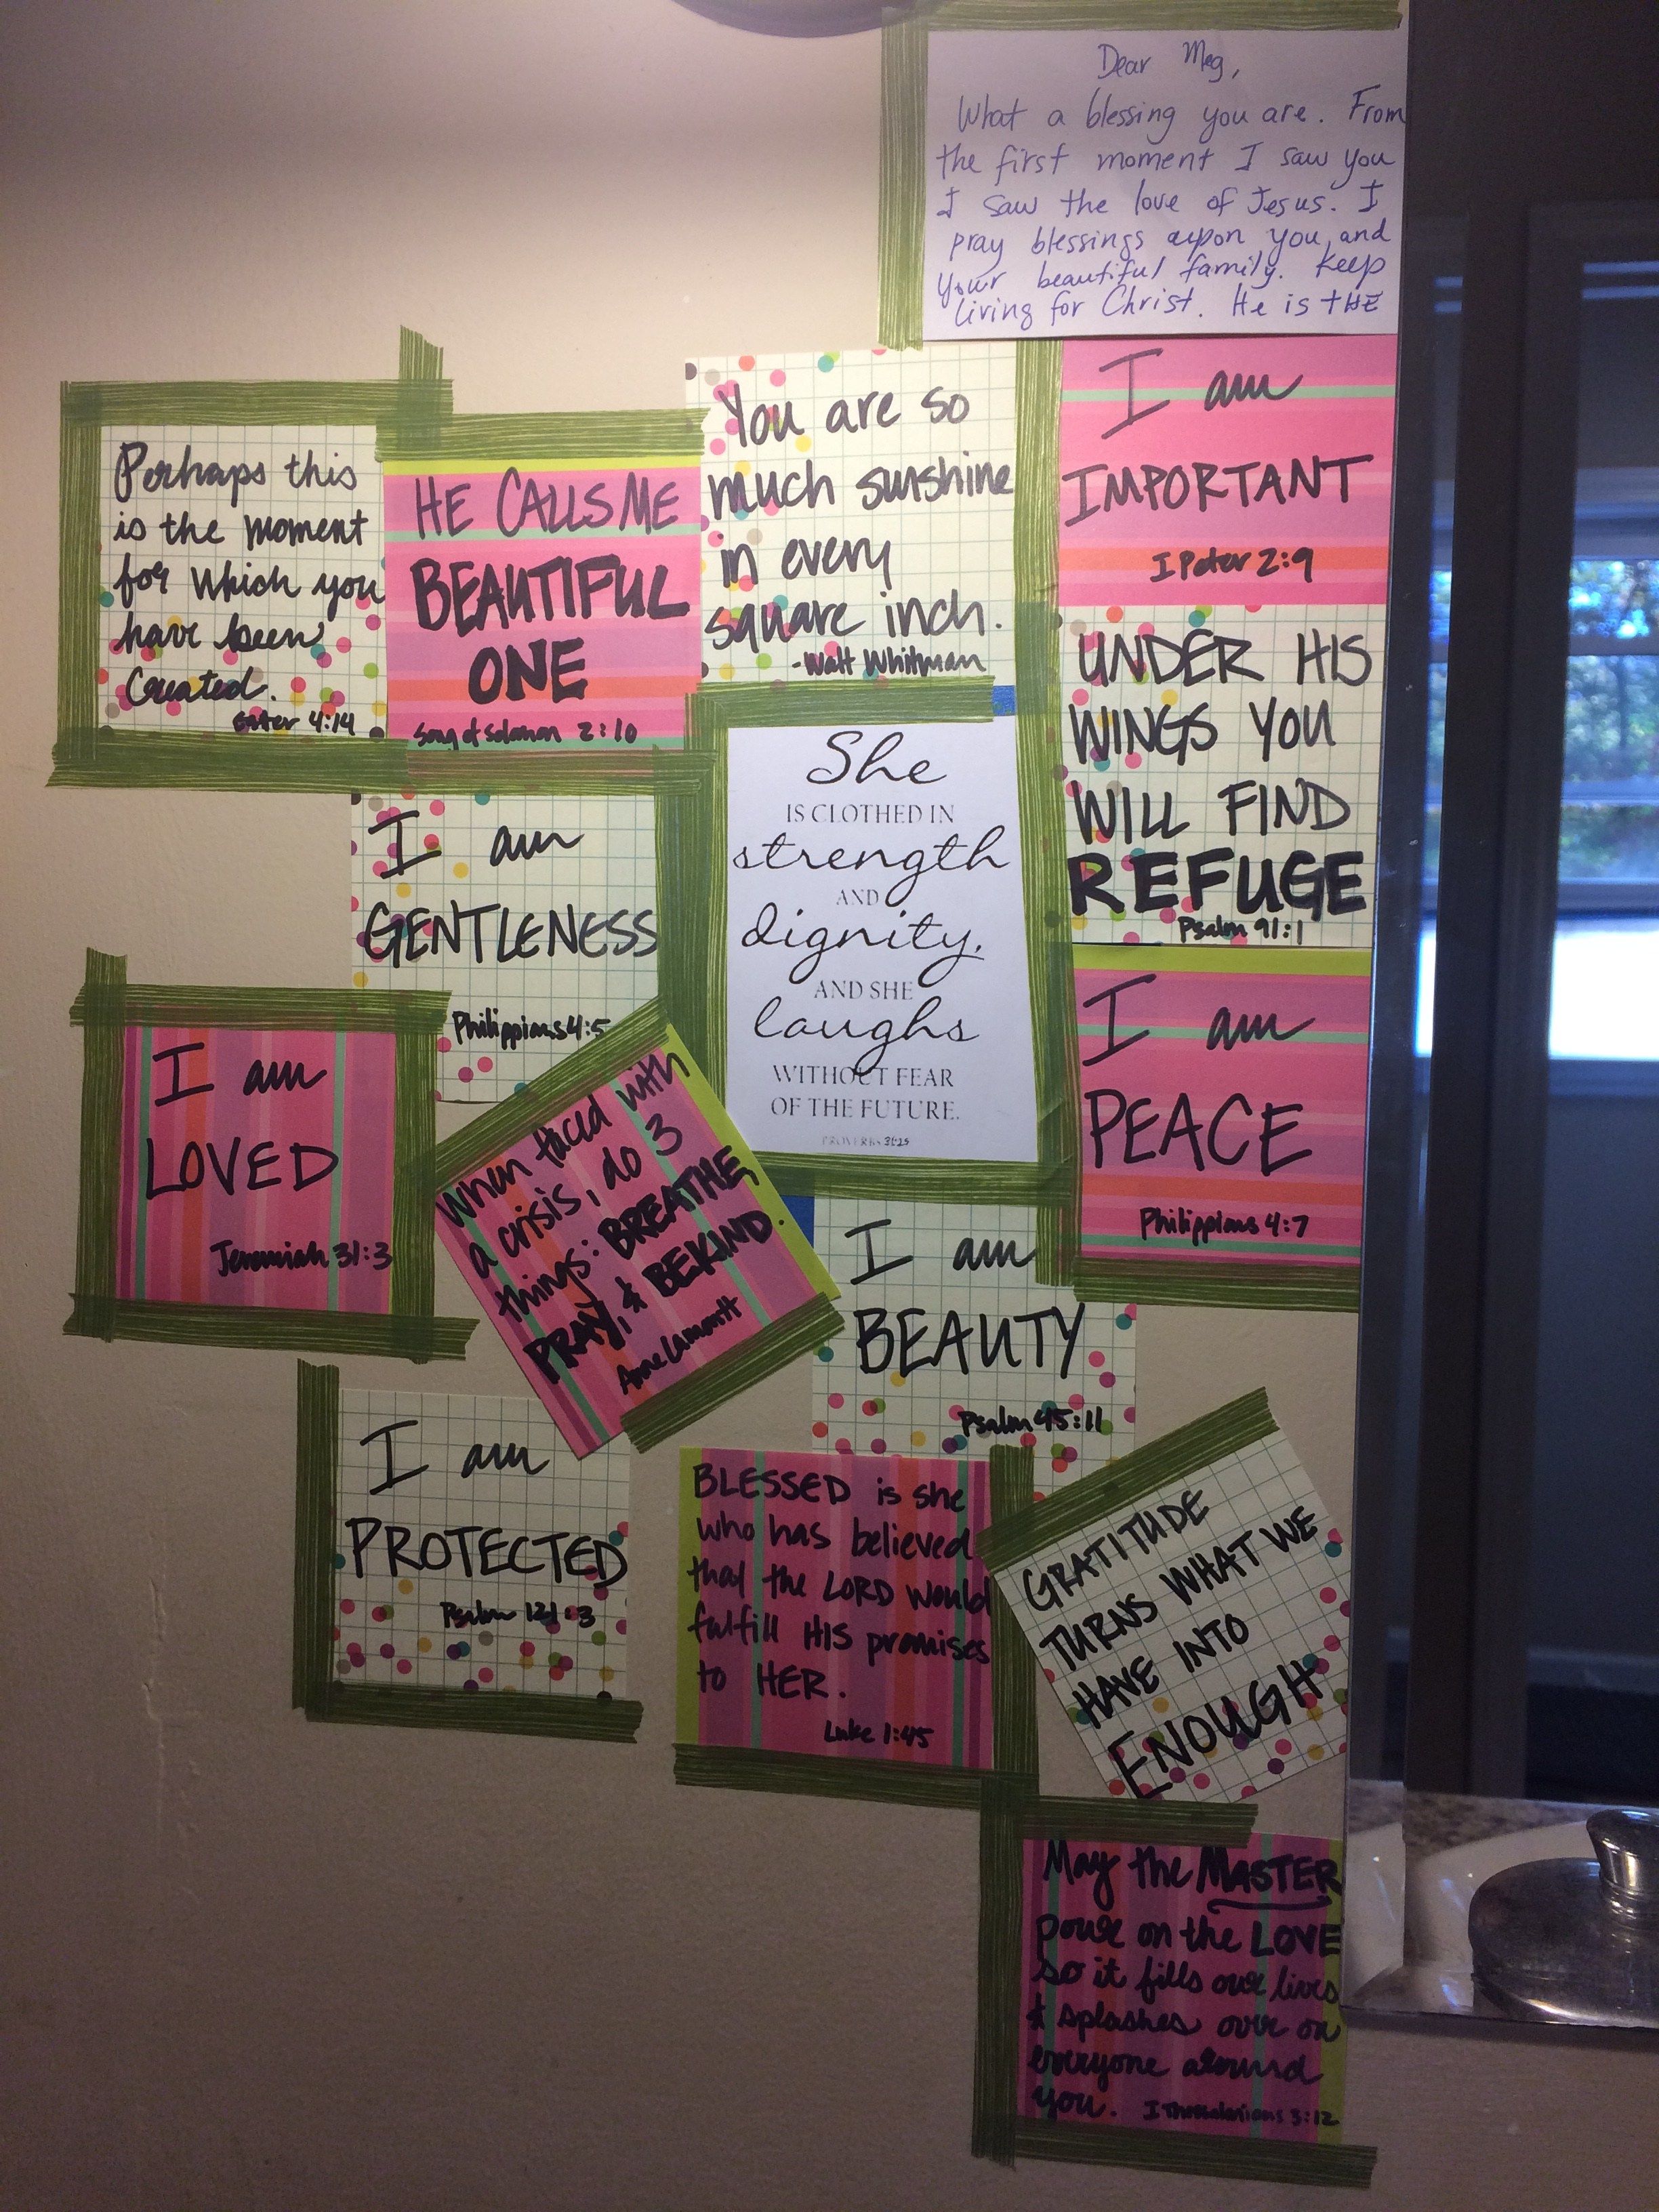 Dear Meg,
What a blessing you are. From
the first moment I saw you
I saw the love of Jesus. I
pray blessings upon you and
your beautiful family. Keep
living for Christ. He is THE
Perhaps this
is the moment
for which you
have been
Created.
Ester 4:14
HE CALLS ME
BEAUTIFUL
ONE
Song of Solomon 2:10
You are so
much sunshine
in every
square inch.
-Walt Whitman
I am
IMPORTANT
I Peter 2:9
UNDER HIS
WINGS YOU
WILL FIND
REFUGE
Psalm 91:1
I am
GENTLENESS
Philippians 4:5
She
IS CLOTHED IN
strength
AND
dignity,
AND SHE
laughs
WITHOUT FEAR
OF THE FUTURE.
PROVERBS 31:25
I am
PEACE
Philippians 4:7
I am
LOVED
Jeremiah 31:3
When faced with
a crisis, do 3
things: BREATHE,
PRAY, & BE KIND.
Anne Lamott
I am
BEAUTY
Psalm 45:11
I am
PROTECTED
Psalm 121:3
BLESSED is she
who has believed
that the LORD would
fulfill HIS promises
to HER.
Luke 1:45
GRATITUDE
TURNS WHAT WE
HAVE INTO
ENOUGH
May the MASTER
pour on the LOVE
so it fills our lives
& splashes over on
everyone around
you. I Thessalonians 3:12